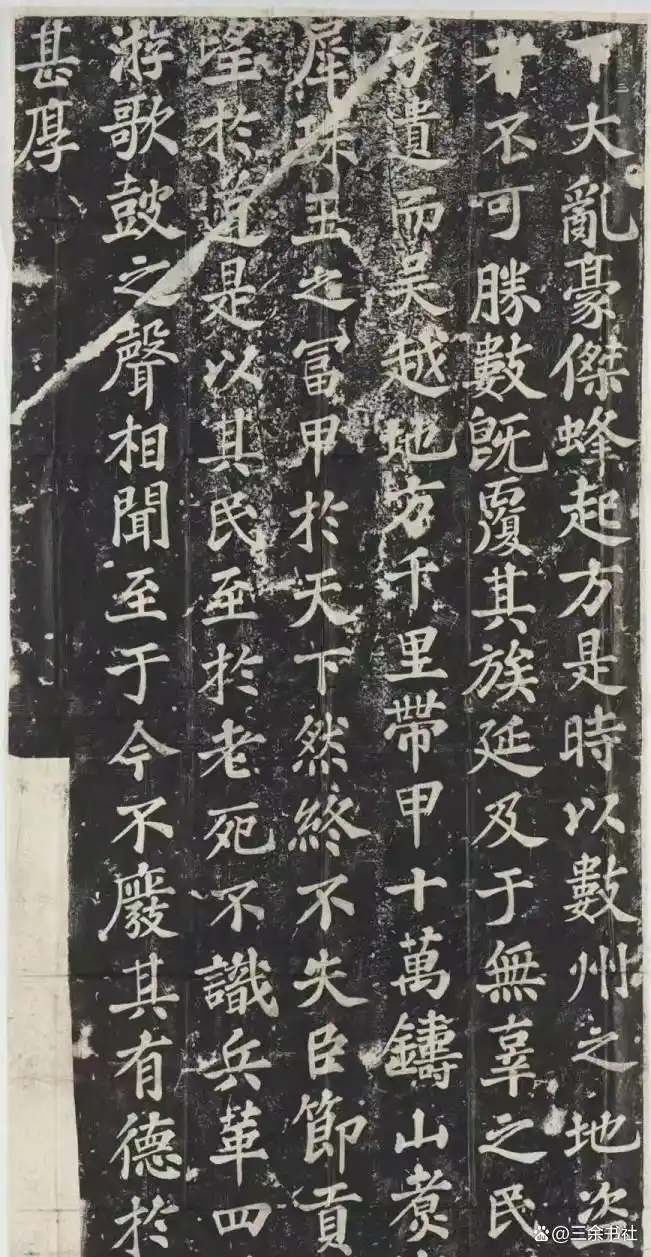 下大亂豪傑蜂起方是時以數州之地
者不可勝數既覆其族延及于無辜之民
孑遺而吳越地方千里帶甲十萬鑄山煑
犀珠玉之冨甲於天下然終不失臣節貢
望於道是以其民至於老死不識兵革四
游歌鼓之聲相聞至于今不廢其有德於
甚厚
@三余书社